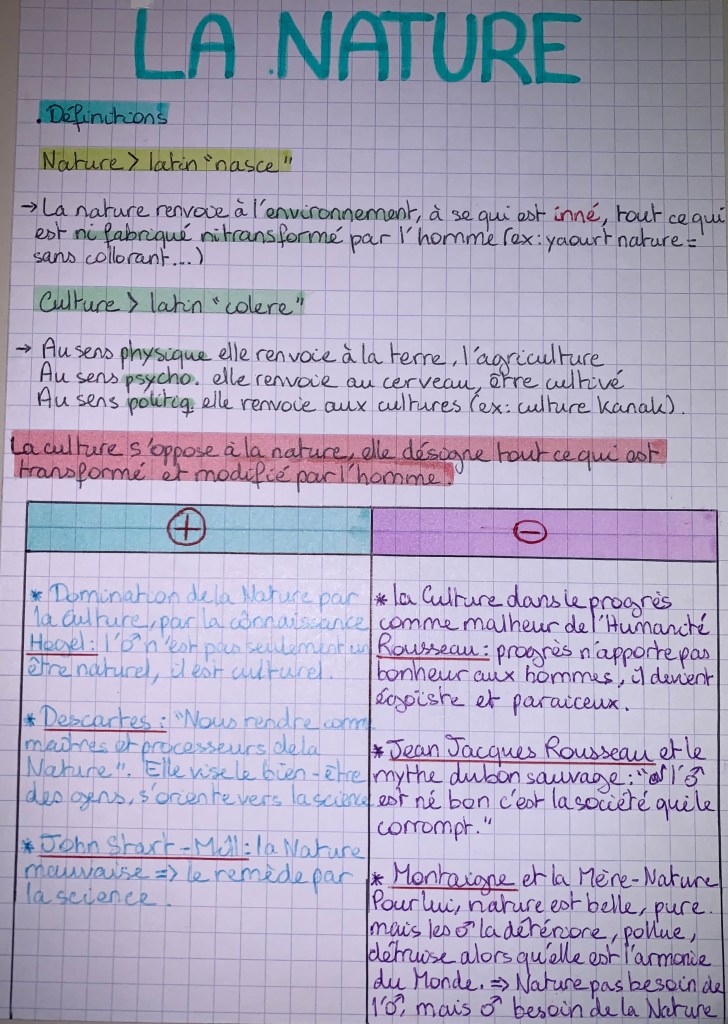 LA NATURE
. Définitions
Nature > latin "nasce"
→ La nature renvoie à l'environnement, à se qui est inné, tout ce qui
est ni fabriqué ni transformé par l'homme (ex: yaourt nature =
sans collorant...)
Culture > latin "colere"
→ Au sens physique elle renvoie à la terre, l'agriculture
Au sens psycho. elle renvoie au cerveau, être cultivé
Au sens politiq. elle renvoie aux cultures (ex: culture Kanak).
La culture s'oppose à la nature, elle désigne tout ce qui est
transformé et modifié par l'homme.
+
* Domination de la Nature par
la Culture, par la connaissance
Hegel: l'♂ n'est pas seulement un
être naturel, il est culturel.
* Descartes: "Nous rendre comm
maîtres et processeurs de la
Nature". Elle vise le bien-être
des gens, s'oriente vers la science
* John Start-Mill: la Nature
mauvaise => le remède par
la science.
-
* la Culture dans le progrès
comme malheur de l'Humanité
Rousseau: progrès n'apporte pas
bonheur aux hommes, il devient
égoïste et paraiceux.
* Jean Jacques Rousseau et le
mythe du bon sauvage: "l'♂
est né bon c'est la société qui le
corrompt."
* Montaigne et la Mère-Nature
Pour lui, nature est belle, pure.
mais les ♂ la détériore, pollue,
détruise alors qu'elle est l'armonie
du Monde. => Nature pas besoin de
l'♂, mais ♂ besoin de la Nature